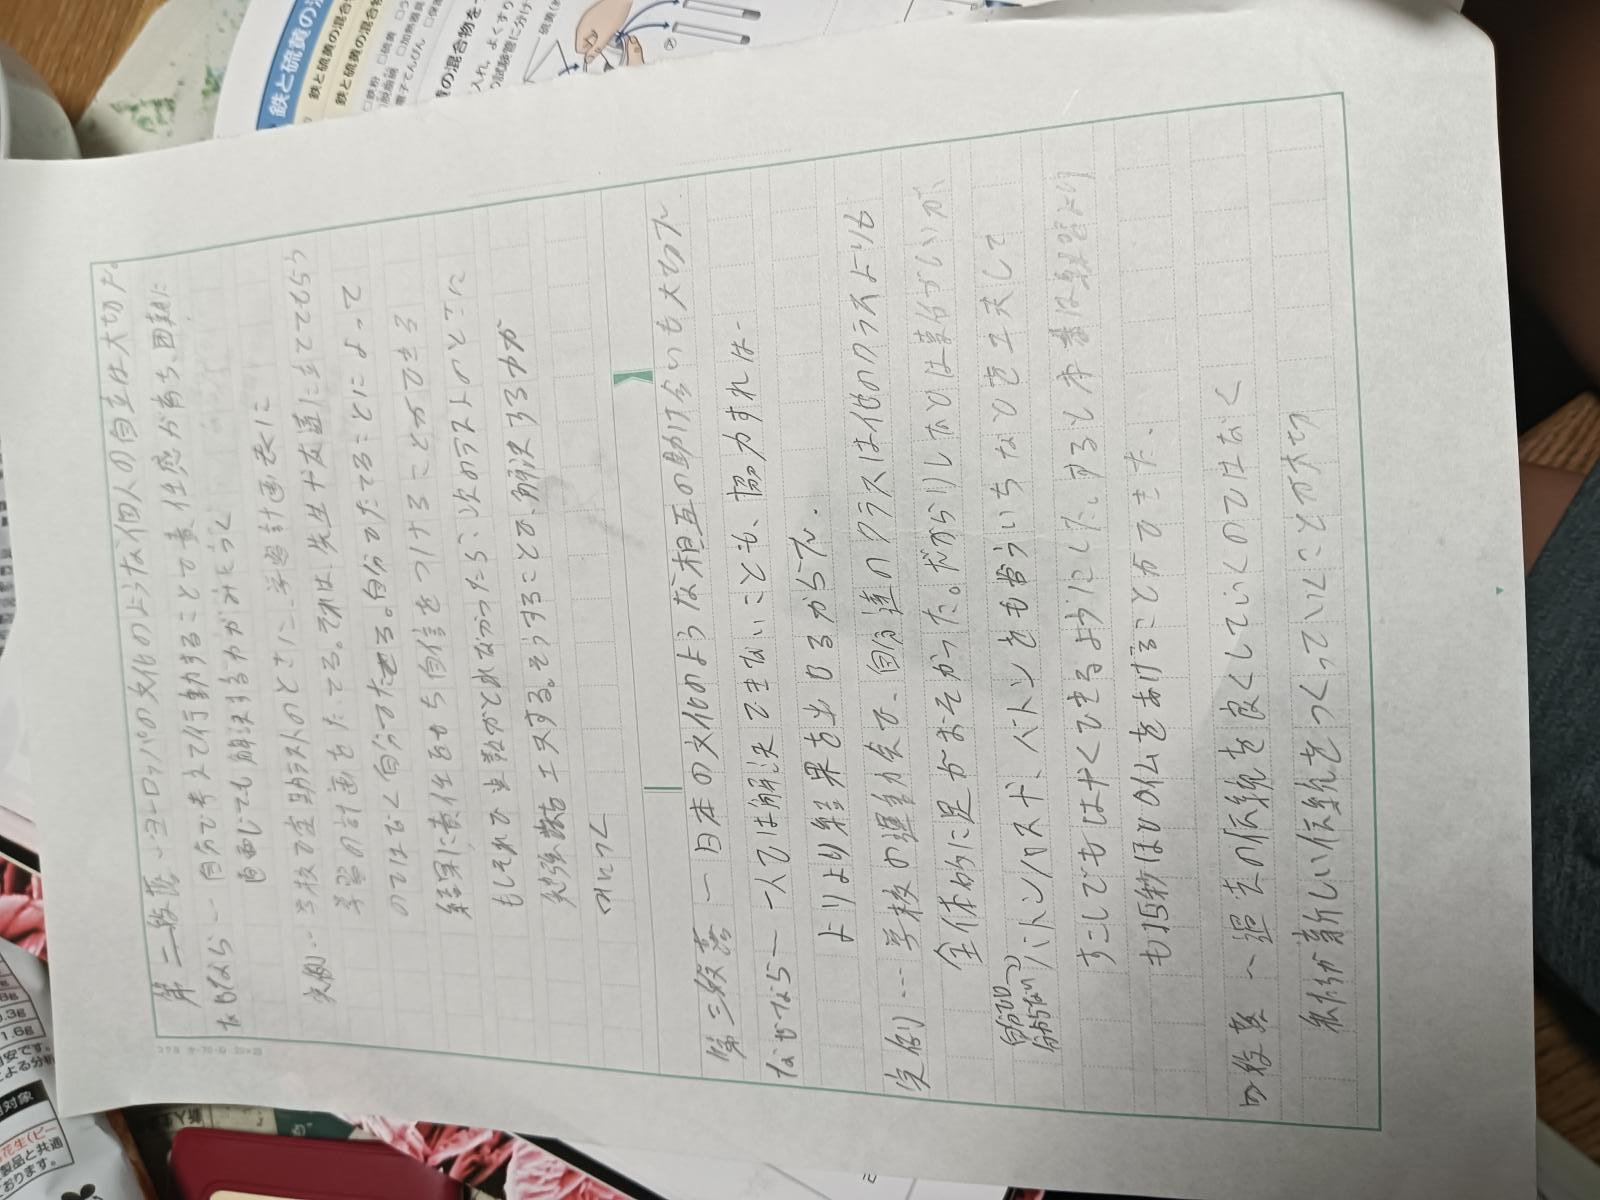 第二段落…ヨーロッパの文化のような個人の自立は大切だ。
なぜなら…自分で考えて行動することで責任感が育ち、困難に
直面しても解決する力がみにつく
実例…学校で定期テストのときに、学習計画表に
学習の計画をたてる。それは、先生や友達に立ててもらう
のではなく自分でたてる。自分がたてることによって
結果に責任をもち自信をつけることができる
もしそれで点数がとれなかったら、次のテストのときに
勉強教方工夫する。そうすることで、解決する力が
みにつく
第三段落 ー 日本の文化のような相互の助け合いも大切だ
なぜなら ー 一人では解決できないことも、協力すれば
よりより結果を出せるからだ。
実例 … 学校の運動会で、自分達のクラスは他のクラスよりも
全体的に足がおそかった。だから
バトンパスや、バトンをもらういちなどを工夫して
すこしでもはやくできるようにした。すると本番は練習より
も15秒ほどタイムをあげることができた。
四段落 ー 過去の伝統を良くしていくのではなく
私たちが新しい伝統をつくっていくことが大切
鉄と硫黄の混合物